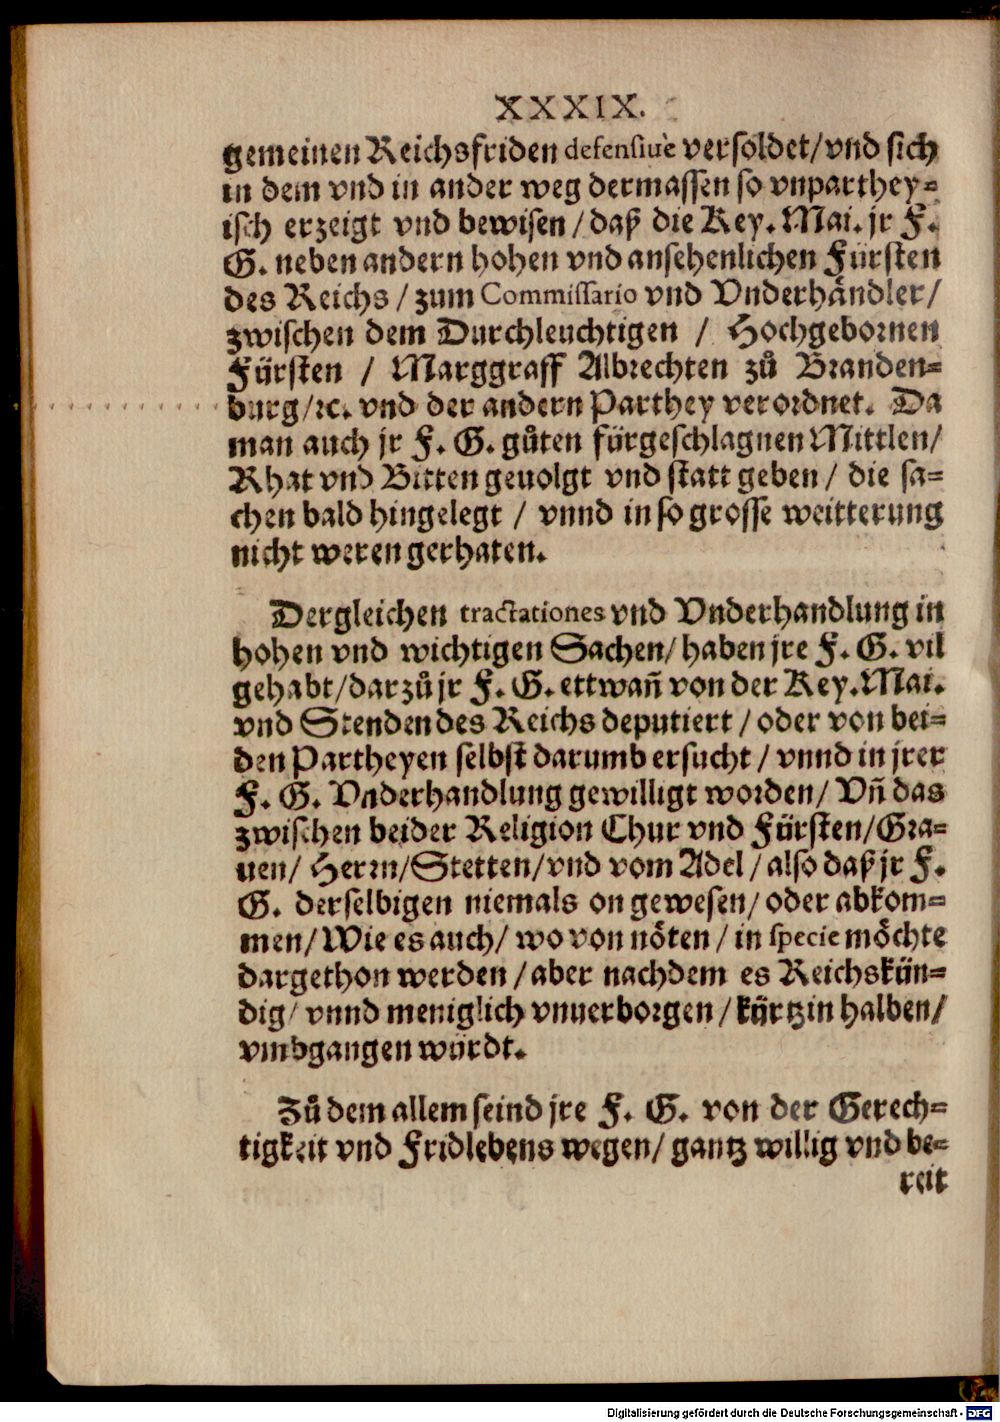 XXXIX.
gemeinen Reichsfriden defensiuè versoldet/vnd sich
in dem vnd in ander weg dermassen so vnparthey-
isch erzeigt vnd bewisen/daß die Key. Mai. jr F.
G. neben andern hohen vnd ansehenlichen Fürsten
des Reichs/zum Commissario vnd Vnderhändler/
zwischen dem Durchleuchtigen / Hochgebornen
Fürsten / Marggraff Albrechten zů Branden-
burg/rc. vnd der andern Parthey verordnet. Da
man auch jr F. G. gůten fürgeschlagnen Mittlen/
Rhat vnd Bitten geuolgt vnd statt geben/ die sa-
chen bald hingelegt / vnnd in so grosse weitterung
nicht weren gerhaten.
Dergleichen tractationes vnd Vnderhandlung in
hohen vnd wichtigen Sachen/haben jre F. G. vil
gehabt/darzů jr F. G. ettwañ von der Key.Mai.
vnd Stenden des Reichs deputiert/oder von bei-
den Partheyen selbst darumb ersucht/vnnd in jrer
F. G. Vnderhandlung gewilligt worden/Vñ das
zwischen beider Religion Chur vnd Fürsten/Gra-
uen/ Herrn/Stetten/vnd vom Adel/also daß jr F.
G. derselbigen niemals on gewesen/oder abkom-
men/Wie es auch/wo von nöten/in specie möchte
dargethon werden/aber nachdem es Reichskün-
dig/ vnnd meniglich vnuerborgen/kürtzin halben/
vmbgangen würdt.
Zů dem allem seind jre F. G. von der Gerech-
tigkeit vnd Fridlebens wegen/gantz willig vnd be-
reit
Digitalisierung gefördert durch die Deutsche Forschungsgemeinschaft - DFG